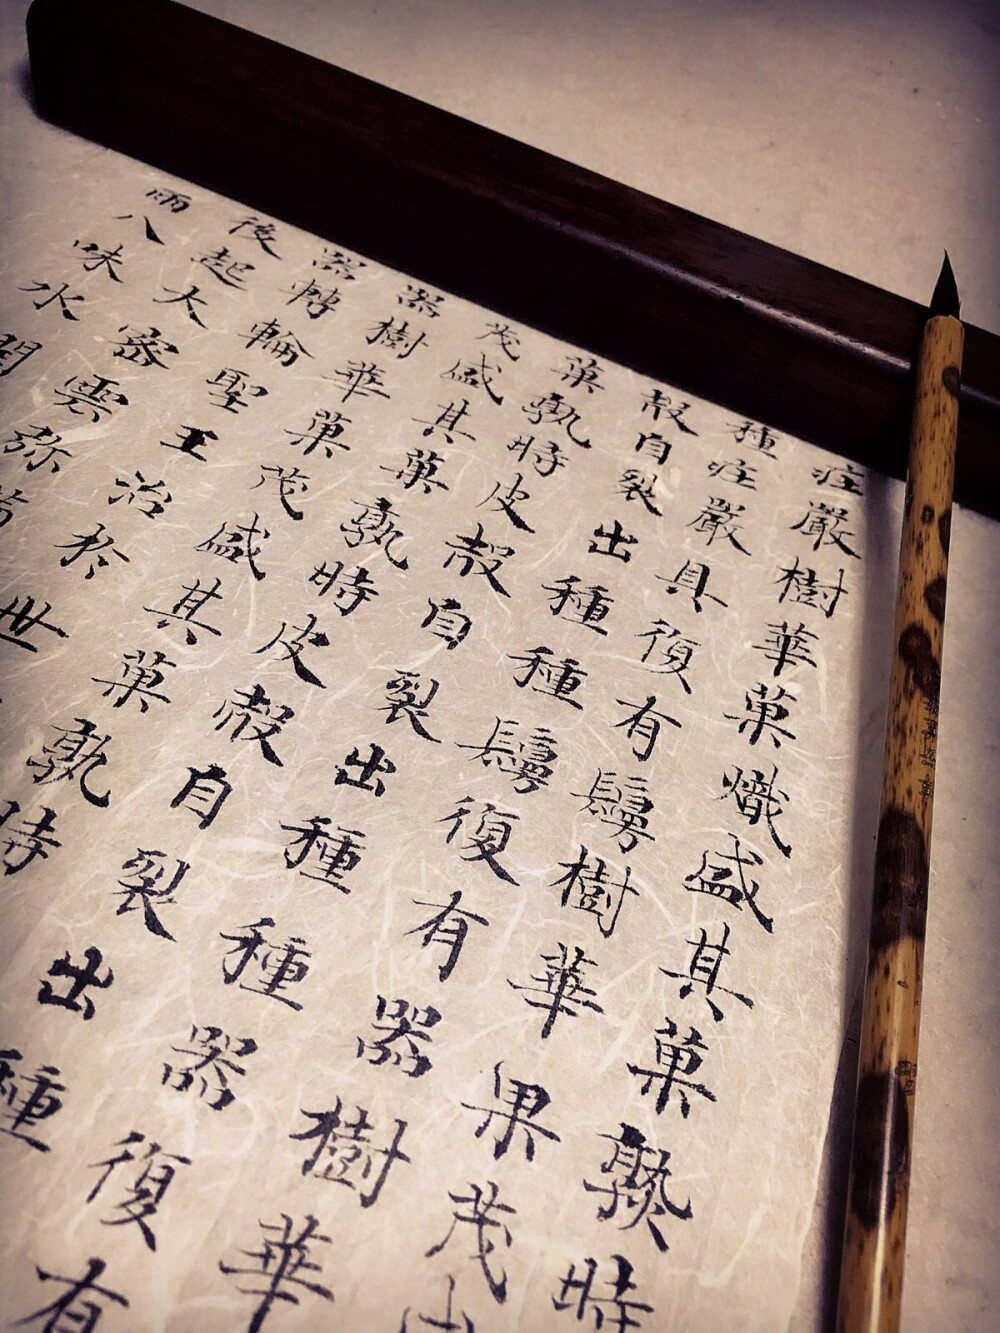 疰嚴樹華菓熾盛其菓熟時
種疰嚴具復有鬘樹華果茂
殼自裂出種種鬘復有器樹華
菓孰時皮殼自裂出種種器復有
茂盛其菓孰時皮殼自裂出種
器樹華菓茂盛其菓孰時
器轉輪聖王治於世
後起大密雲弥
雨八味水